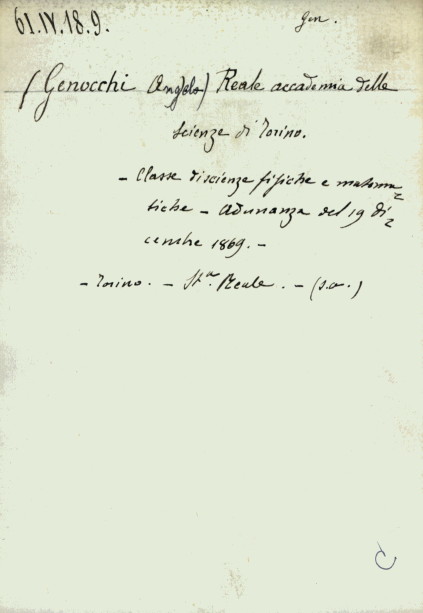 61.IV.18.9.
Gen.
(Genocchi Angelo) Reale accademia delle
scienze di Torino.
- Classe di scienze fisiche e matema=
tiche - Adunanza del 19 di=
cembre 1869. -
- Torino. - St.a Reale. - (s.a.)
C